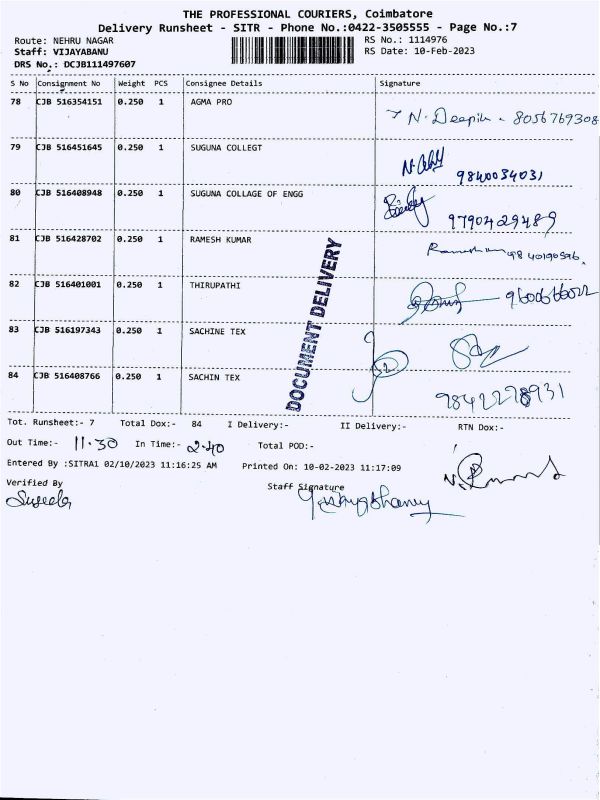 THE PROFESSIONAL COURIERS, Coimbatore
Delivery Runsheet - SITR - Phone No.:0422-3505555 - Page No.:7
Route: NEHRU NAGAR RS No.: 1114976
Staff: VIJAYABANU RS Date: 10-Feb-2023
DRS No.: DCJB111497607
S No Consignment No Weight PCS Consignee Details Signature
78 CJB 516354151 0.250 1 AGMA PRO N. Deepika - 8056769308
79 CJB 516451645 0.250 1 SUGUNA COLLEGT 9840034031
80 CJB 516408948 0.250 1 SUGUNA COLLAGE OF ENGG 9790429489
81 CJB 516428702 0.250 1 RAMESH KUMAR
82 CJB 516401001 0.250 1 THIRUPATHI 9600666022
83 CJB 516197343 0.250 1 SACHINE TEX
84 CJB 516408766 0.250 1 SACHIN TEX 9842278931
DOCUMENT DELIVERY
Tot. Runsheet:- 7 Total Dox:- 84 I Delivery:- II Delivery:- RTN Dox:-
Out Time:- 11.30 In Time:- 2.40 Total POD:-
Entered By :SITRA1 02/10/2023 11:16:25 AM Printed On: 10-02-2023 11:17:09
Verified By Staff Signature